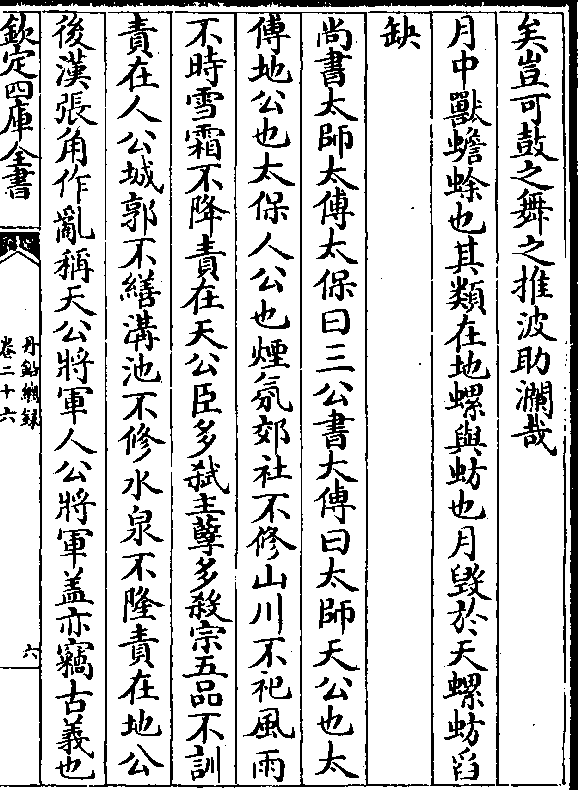 矣豈可鼓之舞之推波助瀾哉
月中獸蟾蜍也其類在地螺與蚄也月毀於天螺蚄舀
缺
尚書太師太傅太保曰三公書大傳曰太師天公也太
傅地公也太保人公也煙氛郊社不修山川不祀風雨
不時雪霜不降責在天公臣多弑主孽多殺宗五品不訓
責在人公城郭不繕溝池不修水泉不隆責在地公
後漢張角作亂稱天公將軍人公將軍盖亦竊古義也
欽定四庫全書
丹鉛總録
卷二十六
六